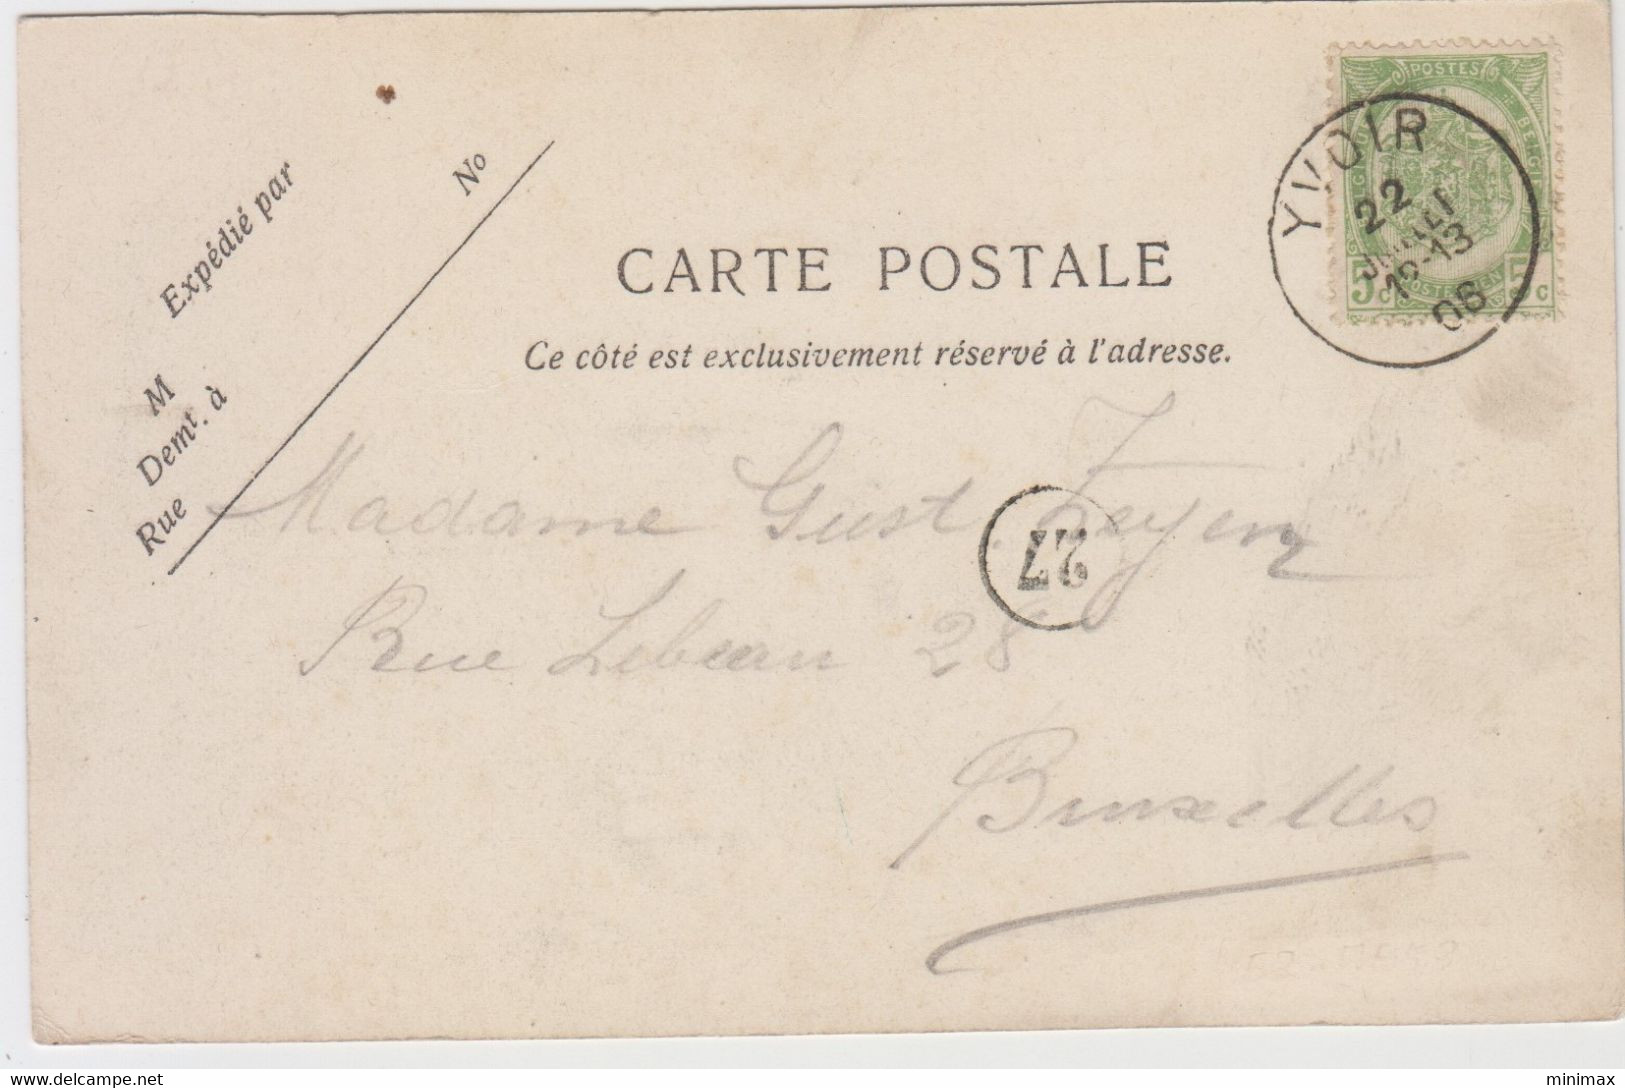 POSTES
BELGI
5 c
5 c
YVOIR
22
12-13
06
Expédié par
No
M
Demt. à
Rue
CARTE POSTALE
Ce côté est exclusivement réservé à l'adresse.
Madame Gust. Zeyen
27
Rue Lebeau 28
Bruxelles
delcampe.net
minimax